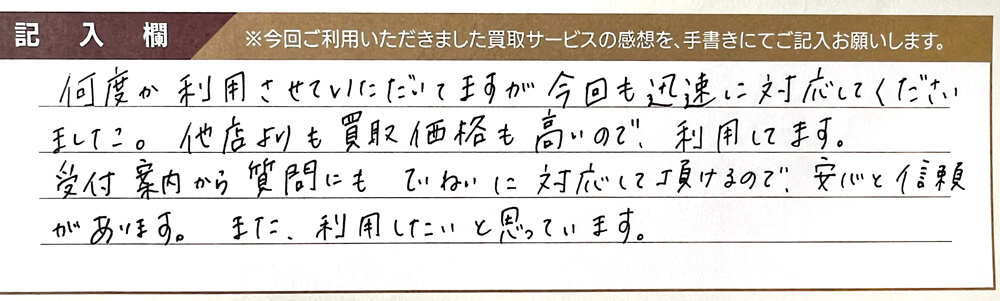 記入欄
※今回ご利用いただきました買取サービスの感想を、手書きにてご記入お願いします。
何度か利用させていただいてますが今回も迅速に対応してください
ました。他店よりも買取価格も高いので、利用してます。
受付案内から質問にもていねいに対応して頂けるので、安心と信頼
があります。また、利用したいと思っています。